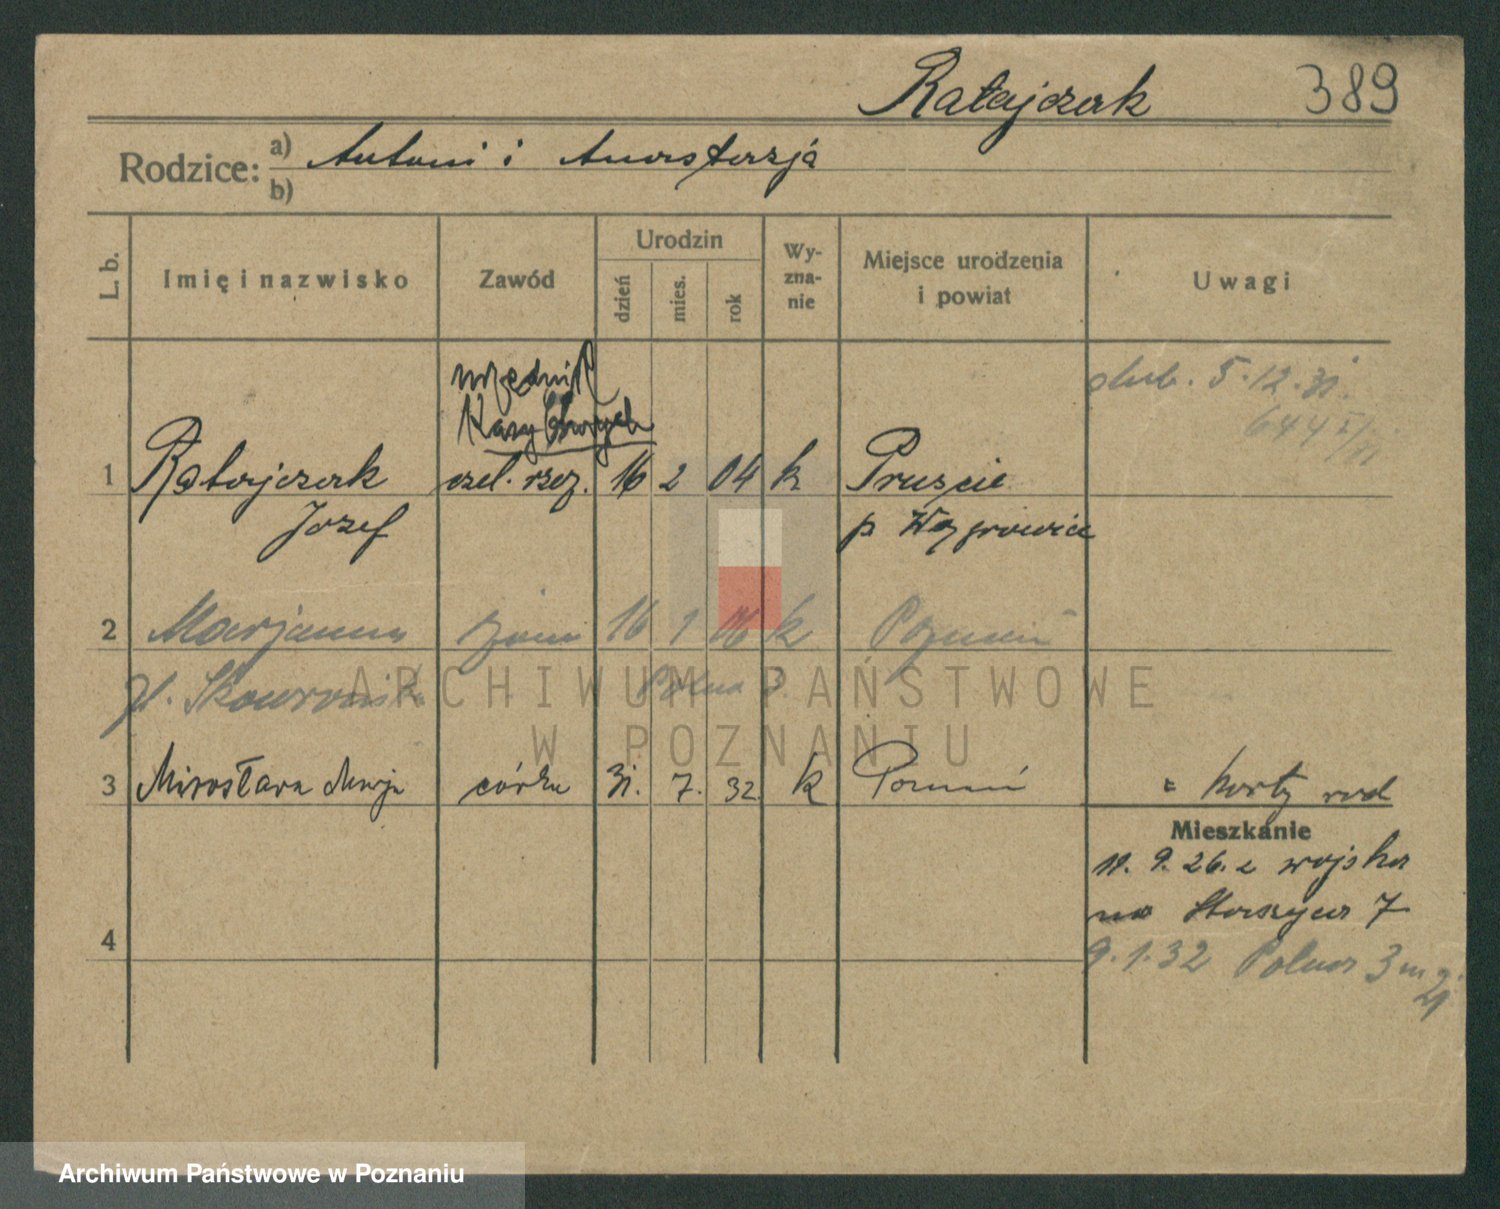 Ratajczak 389
Rodzice: a) Antoni i Anastazja
b)
L. b. Imię i nazwisko Zawód Urodzin dzień mies. rok Wy-zna-nie Miejsce urodzenia i powiat Uwagi
urzędnik
Kasy Chorych
ślub. 5.12.31.
1 Ratajczak czel. rzeź. 16 2 04 k Pruśce
Józef p Wągrowiec
2 Marjanna żona 16 1 06 k Poznań
Polna 3.
3 Mirosława Marja córka 31. 7. 32 k Poznań = karty rod
Mieszkanie
11. 9. 26. z wojska
na Staszyca 7
4
9.1.32 Polna 3 m
ARCHIWUM PAŃSTWOWE
W POZNANIU
Archiwum Państwowe w Poznaniu